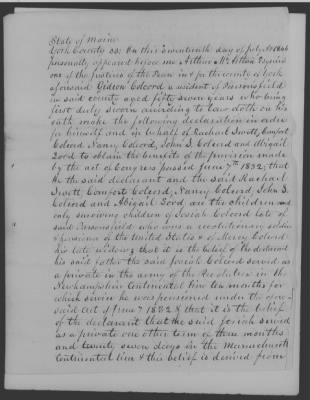 State of Maine
York County SS. On this seventeenth day of July AD 1846
personally appeared before me Arthur McArthur Esquire
one of the justices of the Peace in & for the county of York
aforesaid Gideon Colcord a resident of Parsonsfield
in said county aged fifty seven years who being
first duly sworn according to law doth on his
oath make the following declaration in order
for himself and in behalf of Rachael Swett, Comfort
Colcord Nancy Colcord, John S. Colcord and Abigail
Zood to obtain the benefits of the provision made
by the act of Congress passed June 7th 1832, that
he the said declarant and the said Rachael
Swett, Comfort Colcord, Nancy Colcord, John S.
Colcord and Abigail Zood are the children and
only surviving children of Josiah Colcord late of
said Parsonsfield who was a revolutionary soldier
& pensioner of the United States & of Mercy Colcord
his late widow; that it is the belief of the declarant
his said father the said Josiah Colcord served as
a private in the army of the Revolution in the
Newhampshire Continental line ten months for
which service he was pensioned under the afore-
said Act of June 7 1832 & that it is the belief
of the declarant that the said Josiah served
as a private one other term of three months
and twenty seven days in the Massachusetts
Continental line & this belief is derived from